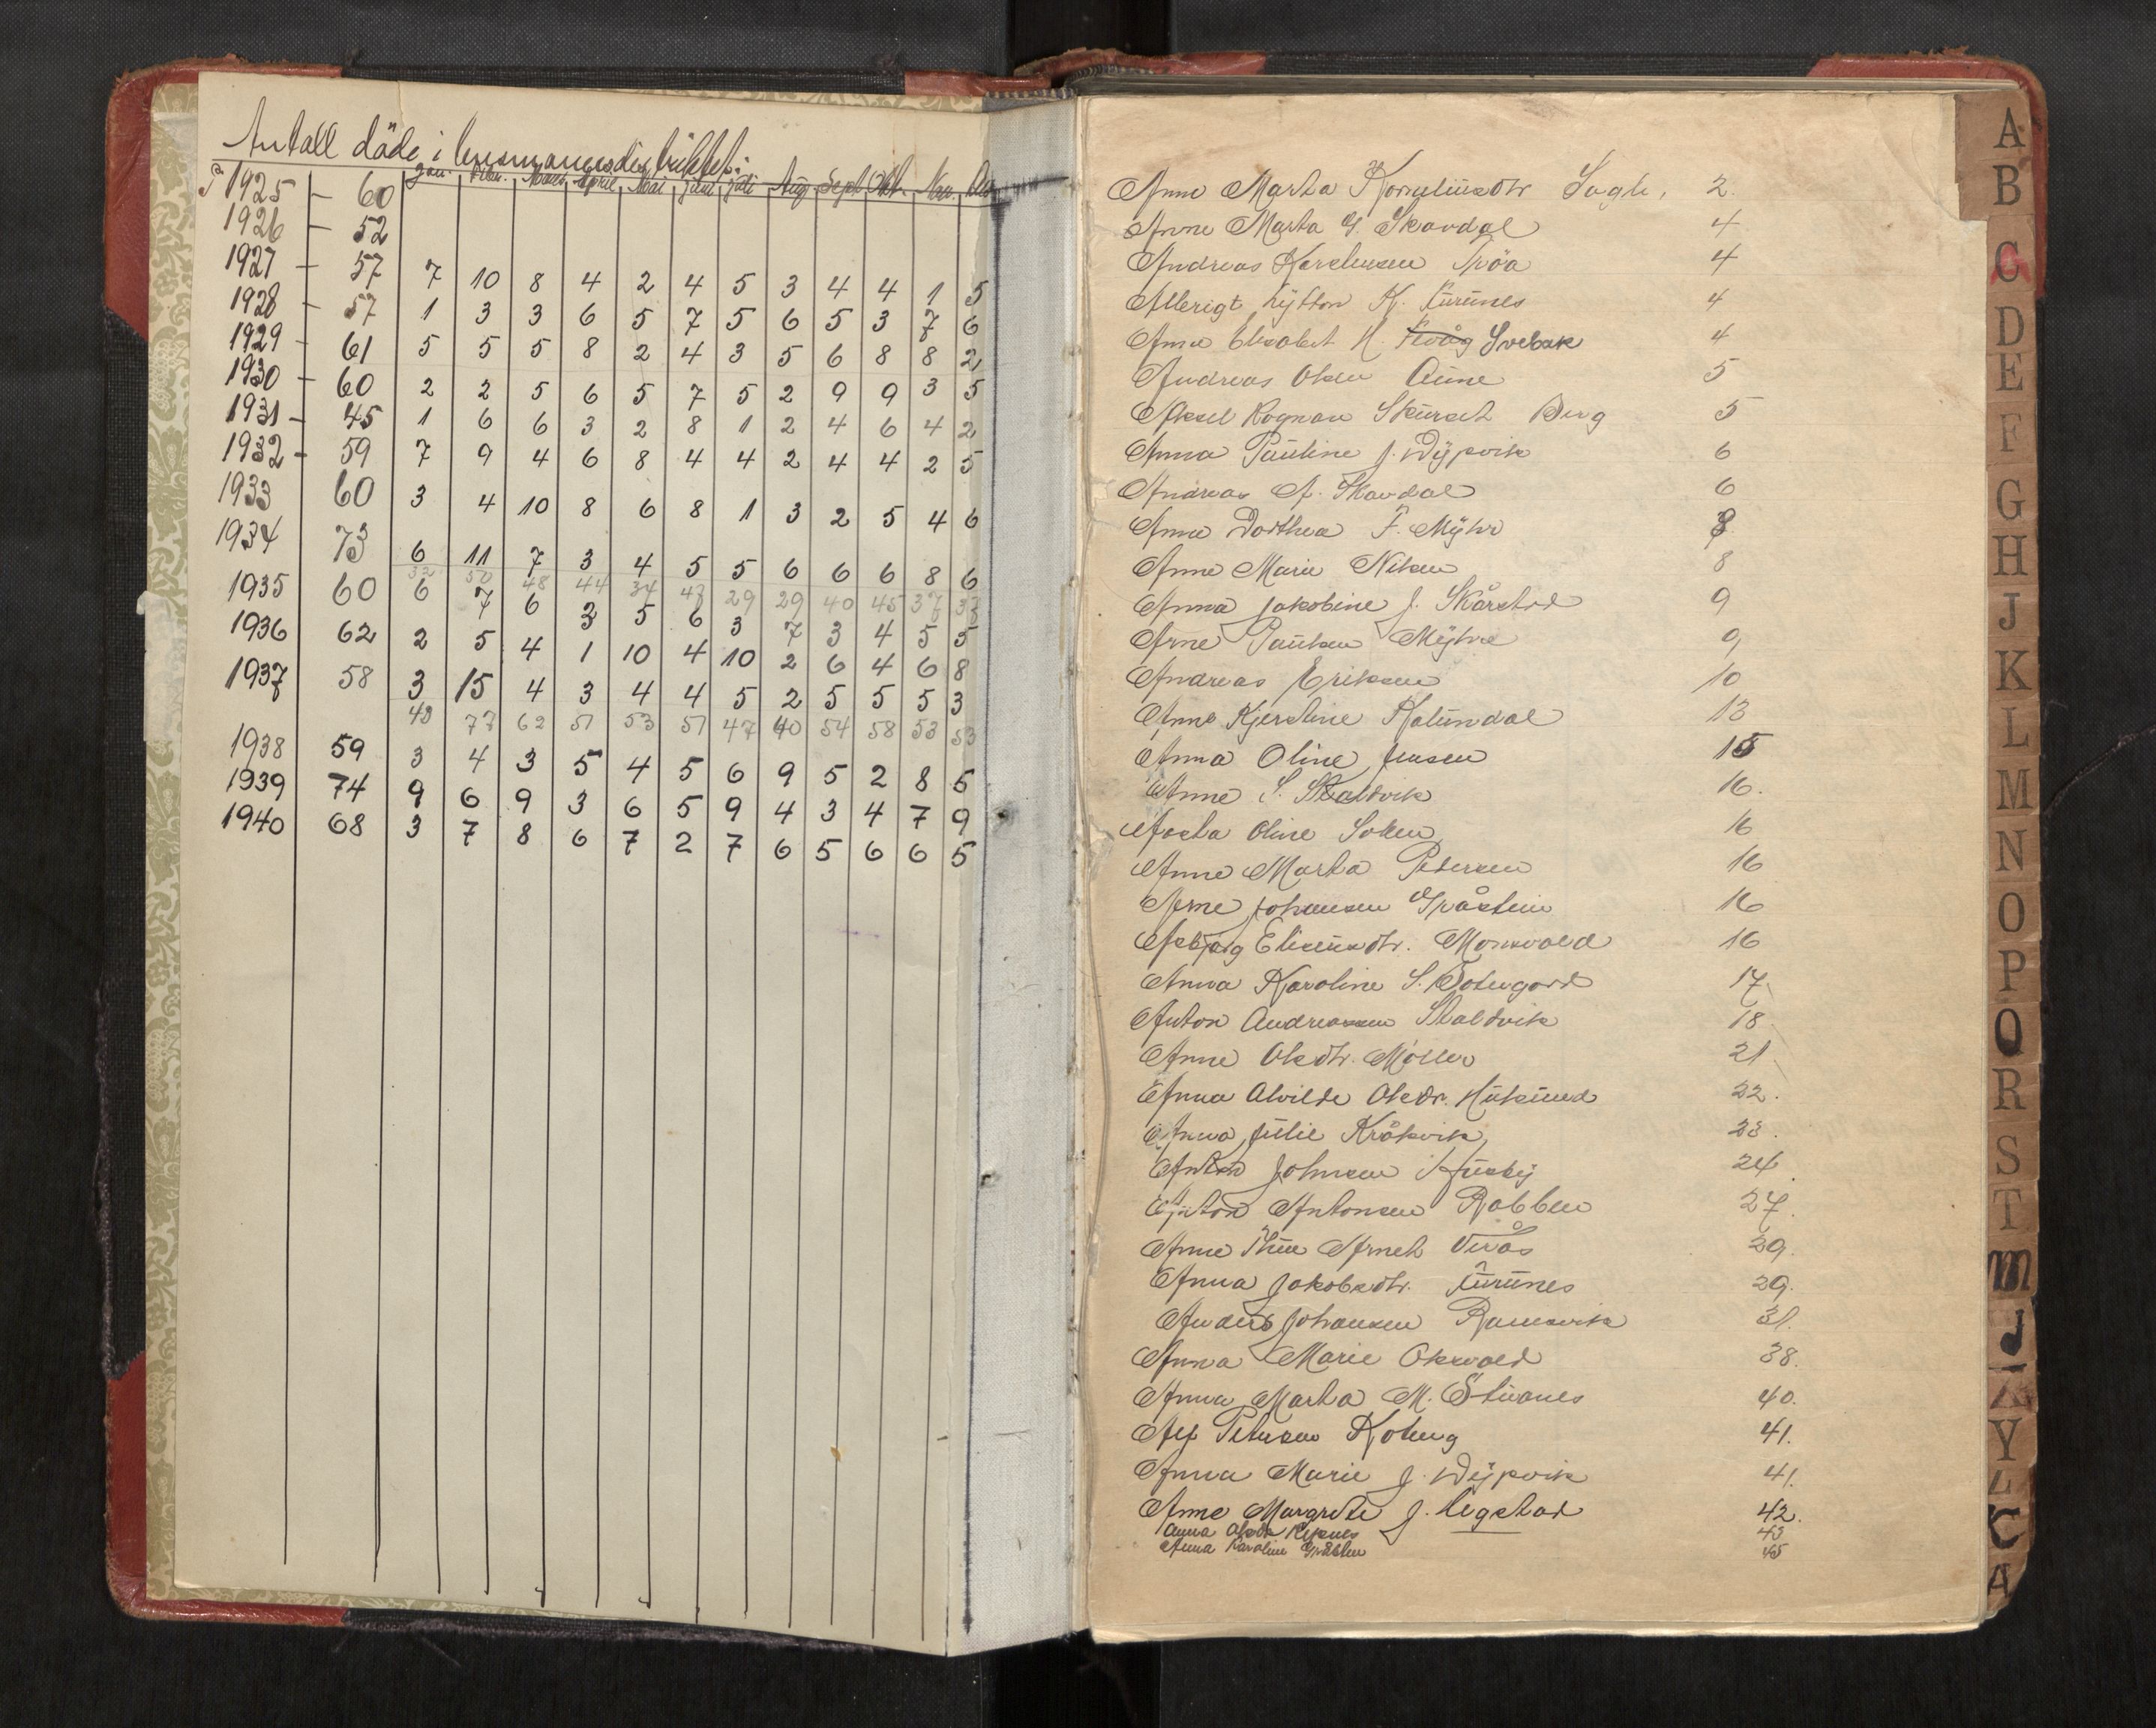 Antall döde i lensmannsdistriktet:
Jan. Febr. Mars April Mai juni juli Aug. Sept. Okt. Nov. Des.
På 1925 - 60
1926 - 52
1927 - 57 7 10 8 4 2 4 5 3 4 4 1 5
1928 - 57 1 3 3 6 5 7 5 6 5 3 7 6
1929 - 61 5 5 5 8 2 4 3 5 6 8 8 2
1930 - 60 2 2 5 6 5 7 5 2 9 9 3 5
1931 - 45 1 6 6 3 2 8 1 2 4 6 4 2
1932 - 59 7 9 4 6 8 4 4 2 4 4 2 5
1933 60 3 4 10 8 6 8 1 3 2 5 4 6
1934 73 6 11 7 3 4 5 5 6 6 6 8 6
32 50 48 44 34 47 29 29 40 45 37 37
1935 60 6 7 6 3 5 6 3 7 3 4 5 5
1936 62 2 5 4 1 10 4 10 2 6 4 6 8
1937 58 3 15 4 3 4 4 5 2 5 5 5 3
43 77 62 51 53 51 47 40 54 58 53 53
1938 59 3 4 3 5 4 5 6 9 5 2 8 5
1939 74 9 6 9 3 6 5 9 4 3 4 7 9
1940 68 3 7 8 6 7 2 7 6 5 6 6 5
Anne Marta Korneliusdtr Sagli, 2.
Anne Marta G. Skavdal 4
Andreas Kareliussen 4
Albrigt Lytton K. Kurunes 4
Anne Elisabet H. Svebak 4
Andreas Olsen Aune 5
Aksel Ragnar Berg 5
Anna Pauline J. Dypvik 6
Andreas A. Skavdal 6
Anna Dorthea F. Myhr 8
Anne Marie Nilsen 8
Anna Jakobine J. Skårstad 9
Arne Paulsen Myhre 9
Andreas Eriksen 10
Anne Kjerstine Kalundal 13
Anna Oline Jensen 15
Anne S. Staldvik 16.
Aasta Oline Solem 16
Anne Marta Petersen 16
Arne Johansen Gråstein 16
Asbjørg Eliseusdtr. Monsvold 16
Anna Karoline S. Sotergard 17.
Anton Andreassen Staldvik 18
Anne Olsdtr. Møller 21
Anna Alvilde Olsdr. 22.
Anna Julie Kråkvik 23.
Anton Johnsen Husby 24.
Anton Antonsen Rabben 27.
Anne Thue Arnet Viås 29.
Anna Jakobsdtr. Kurunes 29.
Anders Johansen Ramsvik 31.
Anna Marie Oksvold 38.
Anna Marta M. Stuanes 40.
Alf Petersen Koteng 41.
Anna Marie J. Dypvik 41.
Anne Margrete J. Ugstad 42.
Anna 43
Anna Karoline 45
A
B
C
D
E
F
G
H
J
K
L
M
N
O
P
Q
R
S
T
M
J
Y
C
A